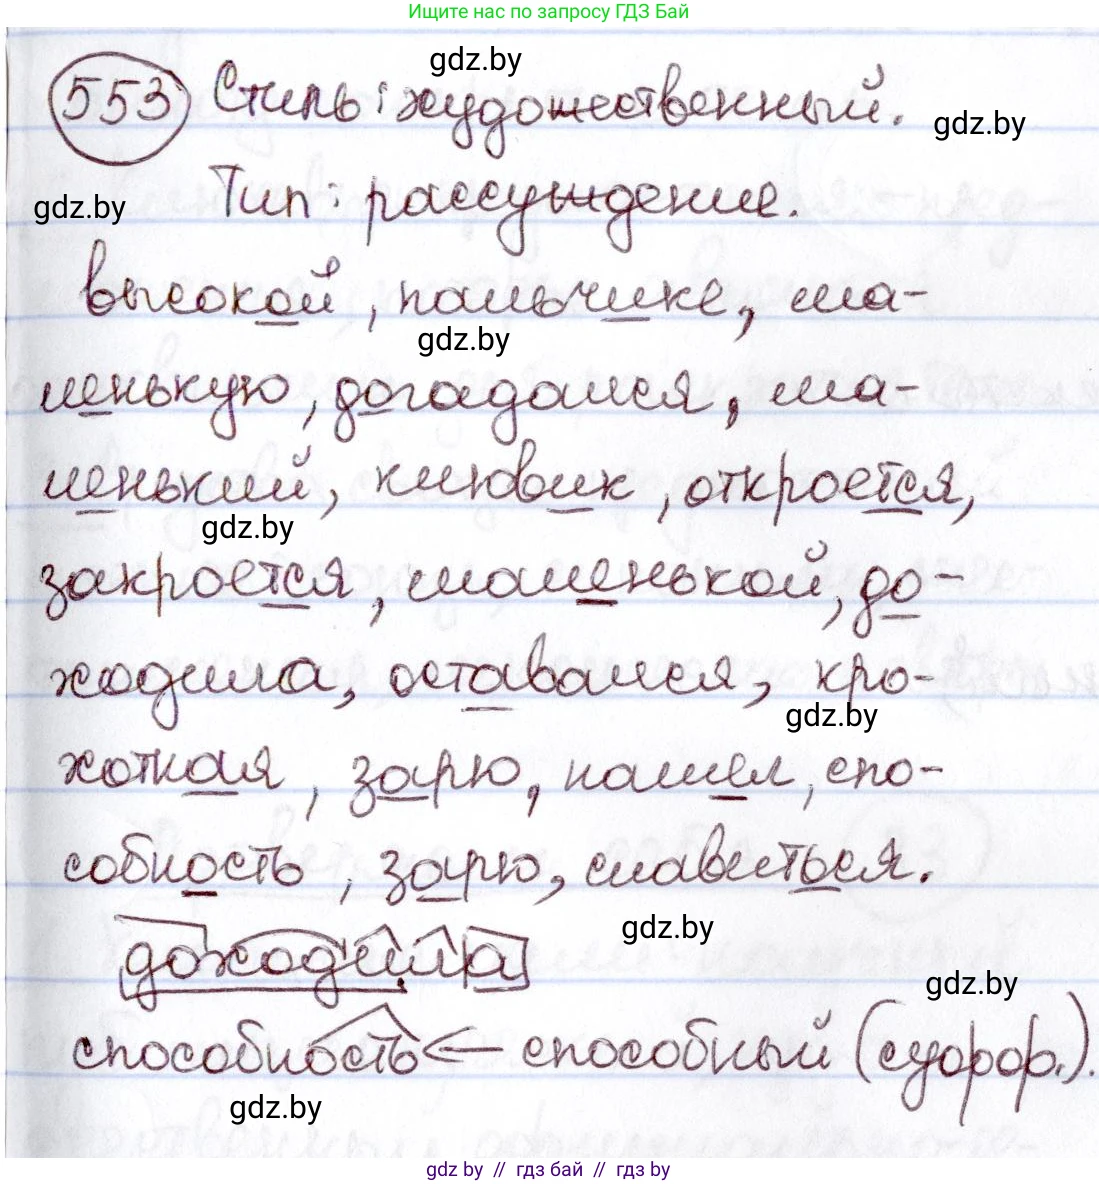 Ищите нас по запросу ГДЗ Бай
gdz.by
553 Стиль: художественный.
gdz.by
Тип: рассуждение.
gdz.by
высокой, пальчике, ма-
gdz.by
ленькую, догадался, ма-
ленький, клювик, откроется,
gdz.by
закроется, маленькой, до-
ходила, оставался, кро-
gdz.by
хотная, зарю, нашел, спо-
собность, зарю, славиться.
gdz.by
доходила
gdz.by
способность ← способный (суфф.).
gdz.by
gdz by // гдз бай // гдз by